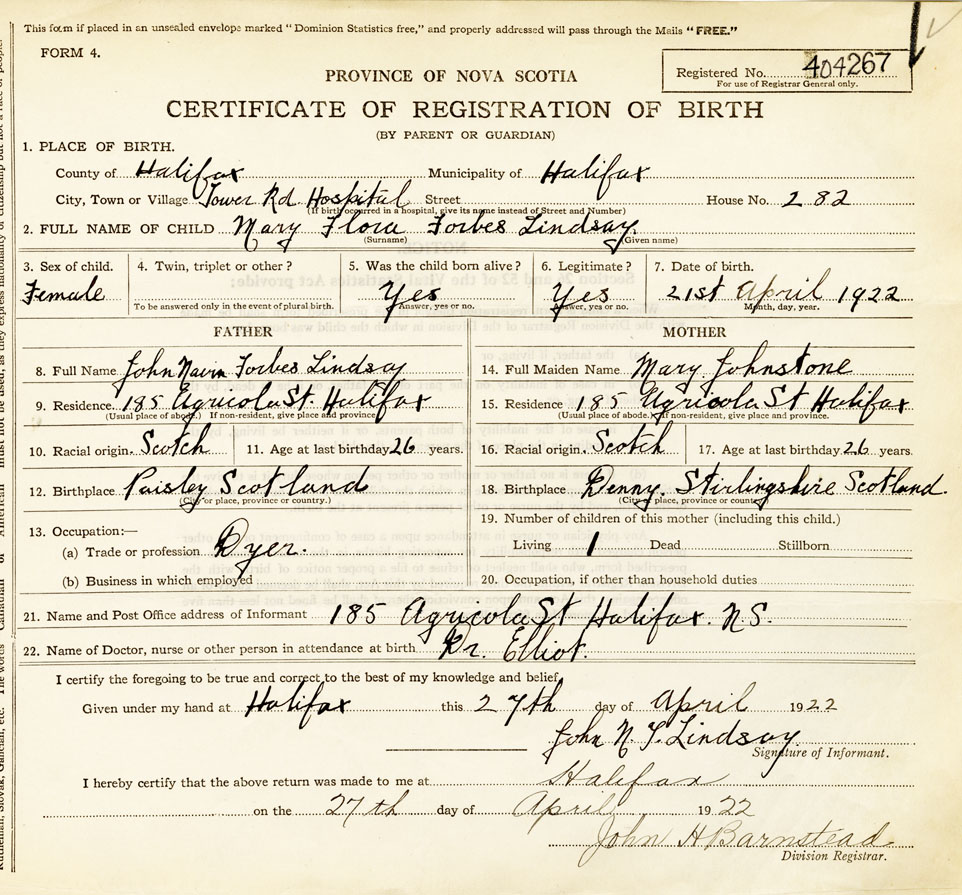 This form if placed in an unsealed envelope marked "Dominion Statistics free," and properly addressed will pass through the Mails "FREE."
FORM 4.
Registered No. 404267
For use of Registrar General only.
PROVINCE OF NOVA SCOTIA
CERTIFICATE OF REGISTRATION OF BIRTH
(BY PARENT OR GUARDIAN)
1. PLACE OF BIRTH.
County of Halifax Municipality of Halifax
City, Town or Village Tower Rd Hospital Street House No. 282
(If birth occurred in a hospital, give its name instead of Street and Number)
2. FULL NAME OF CHILD Mary Flora Forbes Lindsay.
(Surname) (Given name)
3. Sex of child. 4. Twin, triplet or other? 5. Was the child born alive? 6. Legitimate? 7. Date of birth.
Female Yes Yes 21st April 1922
To be answered only in the event of plural birth. Answer, yes or no. Answer, yes or no. Month, day, year.
FATHER MOTHER
8. Full Name John Navin Forbes Lindsay 14. Full Maiden Name Mary Johnstone
9. Residence 185 Agricola St. Halifax 15. Residence 185 Agricola St Halifax
(Usual place of abode.) If non-resident, give place and province. (Usual place of abode) If non-resident, give place and province.
10. Racial origin. Scotch 11. Age at last birthday 26 years. 16. Racial origin. Scotch 17. Age at last birthday 26 years.
12. Birthplace Paisley Scotland 18. Birthplace Denny. Stirlingshire Scotland.
(City or place, province or country.) (City or place, province or country)
13. Occupation:— 19. Number of children of this mother (including this child.)
(a) Trade or profession Dyer. Living 1 Dead Stillborn
(b) Business in which employed 20. Occupation, if other than household duties
21. Name and Post Office address of Informant 185 Agricola St Halifax. N.S.
22. Name of Doctor, nurse or other person in attendance at birth. Dr. Elliot.
I certify the foregoing to be true and correct to the best of my knowledge and belief.
Given under my hand at Halifax this 27th day of April 1922
John N. F. Lindsay
Signature of Informant.
I hereby certify that the above return was made to me at Halifax
on the 27th day of April 1922
John H Barnstead
Division Registrar.